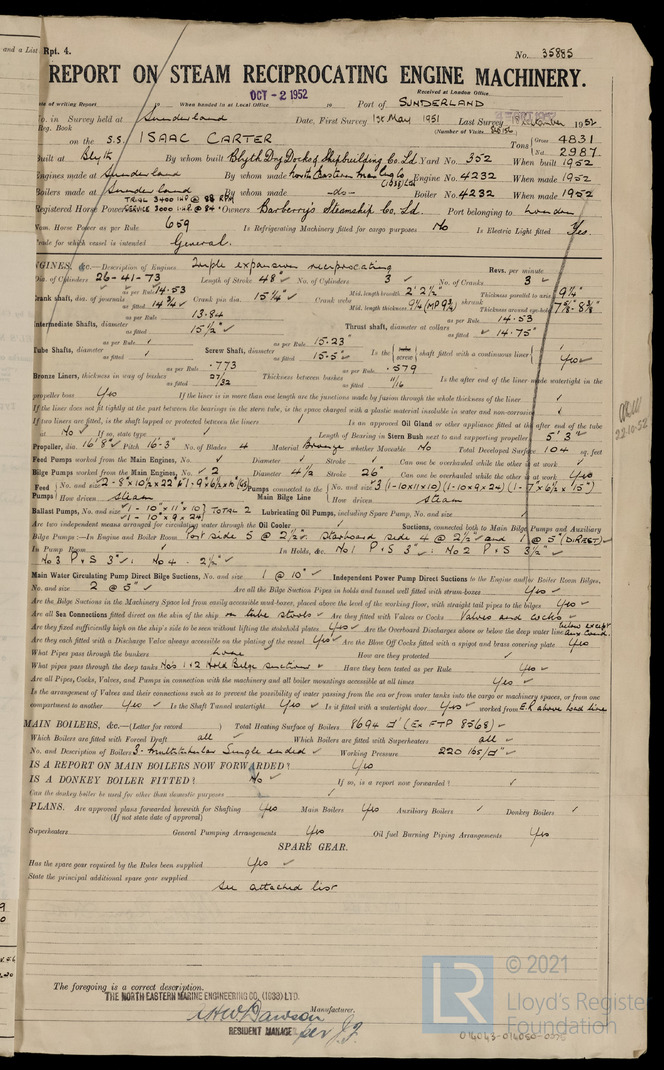 and a List
Rpt. 4.
No. 35885
REPORT ON STEAM RECIPROCATING ENGINE MACHINERY.
Received at London Office
OCT - 2 1952
Date of writing Report When handed in at Local Office Port of SUNDERLAND
No. in Survey held at Sunderland Date, First Survey 1st May 1951 Last Survey 1952
Reg. Book (Number of Visits
on the S.S. ISAAC CARTER Tons Gross 4831
Net 2987
Built at Blyth By whom built Blyth Dry Docks & Shipbuilding Co. Ld Yard No. 352 When built 1952
Engines made at Sunderland By whom made North Eastern Mar Eng Co (1938) Ld Engine No. 4232 When made 1952
Boilers made at Sunderland By whom made -do- Boiler No. 4232 When made 1952
TRIAL 3400 IHP @ 88 RPM
Registered Horse Power SERVICE 3000 IHP @ 84 Owners Barberrys Steamship Co. Ld. Port belonging to London
Nom. Horse Power as per Rule 659 Is Refrigerating Machinery fitted for cargo purposes No Is Electric Light fitted Yes.
Trade for which vessel is intended General.
ENGINES, &c.—Description of Engines Triple expansion reciprocating Revs. per minute
Dia. of Cylinders 26-41-73 Length of Stroke 48" No. of Cylinders 3 No. of Cranks 3
Crank shaft, dia. of journals as per Rule 14.53 as fitted 14¾ Crank pin dia. 15¼" Crank webs Mid. length breadth 2' 2½" Thickness parallel to axis 9¼"
Mid. length thickness 9¼ (MP 9¾) shrunk Thickness around eye-hole 7⅝"-8⅜"
Intermediate Shafts, diameter as per Rule 13.84 as fitted 15½" Thrust shaft, diameter at collars as per Rule 14.53 as fitted 14.75"
Tube Shaft, diameter as per Rule as fitted Screw Shaft, diameter as per Rule 15.23" as fitted 15.5" Is the tube screw shaft fitted with a continuous liner Yes
Bronze Liners, thickness in way of bushes as per Rule .773 as fitted 27/32 Thickness between bushes as per Rule .579 as fitted 11/16 Is the after end of the liner made watertight in the
propeller boss Yes If the liner is in more than one length are the junctions made by fusion through the whole thickness of the liner
If the liner does not fit tightly at the part between the bearings in the stern tube, is the space charged with a plastic material insoluble in water and non-corrosive
If two liners are fitted, is the shaft lapped or protected between the liners Is an approved Oil Gland or other appliance fitted at the after end of the tube
shaft No If so, state type Length of Bearing in Stern Bush next to and supporting propeller 5' 3"
Propeller, dia. 16' 8" Pitch 16'-3" No. of Blades 4 Material Bronze whether Moveable No Total Developed Surface 104 sq. feet
Feed Pumps worked from the Main Engines, No. Diameter Stroke Can one be overhauled while the other is at work
Bilge Pumps worked from the Main Engines, No. 2 Diameter 4½ Stroke 26" Can one be overhauled while the other is at work Yes
Feed Pumps No. and size 2-8"x10½x22" 1-9"x6½x10" Pumps connected to the Main Bilge Line No. and size 3 (1-10x11x10) (1-10x9x24) (1-7"x6½"x15")
How driven Steam How driven Steam
Ballast Pumps, No. and size 1-10"x11"x10" 1-10"x9"x24" TOTAL 2 Lubricating Oil Pumps, including Spare Pump, No. and size
Are two independent means arranged for circulating water through the Oil Cooler Suctions, connected both to Main Bilge Pumps and Auxiliary
Bilge Pumps:—In Engine and Boiler Room Port side 5 @ 2½". Starboard side 4 @ 2½" and 1 @ 5" (DIRECT)
In Pump Room In Holds, &c. No 1 P & S 3" No 2 P & S 3½"
No 3 P & S 3" No 4 - 2½"
Main Water Circulating Pump Direct Bilge Suctions, No. and size 1 @ 10" Independent Power Pump Direct Suctions to the Engine and/or Boiler Room Bilges,
No. and size 2 @ 5" Are all the Bilge Suction Pipes in holds and tunnel well fitted with strum-boxes Yes
Are the Bilge Suctions in the Machinery Space led from easily accessible mud-boxes, placed above the level of the working floor, with straight tail pipes to the bilges Yes
Are all Sea Connections fitted direct on the skin of the ship on tube stools Are they fitted with Valves or Cocks Valves and cocks
Are they fixed sufficiently high on the ship's side to be seen without lifting the stokehold plates Yes Are the Overboard Discharges above or below the deep water line below except
Are they each fitted with a Discharge Valve always accessible on the plating of the vessel Yes Are the Blow Off Cocks fitted with a spigot and brass covering plate Yes
What Pipes pass through the bunkers None How are they protected
What pipes pass through the deep tanks Nos 1 & 2 Hold Bilge suctions Have they been tested as per Rule Yes
Are all Pipes, Cocks, Valves, and Pumps in connection with the machinery and all boiler mountings accessible at all times Yes
Is the arrangement of Valves and their connections such as to prevent the possibility of water passing from the sea or from water tanks into the cargo or machinery spaces, or from one
compartment to another Yes Is the Shaft Tunnel watertight Yes Is it fitted with a watertight door Yes worked from E.R. above load line
MAIN BOILERS, &c.—(Letter for record ) Total Heating Surface of Boilers 8694 (Ex FTP 8568)
Which Boilers are fitted with Forced Draft all Which Boilers are fitted with Superheaters all
No. and Description of Boilers 3. Multitubular Single ended Working Pressure 220 lbs/□"
IS A REPORT ON MAIN BOILERS NOW FORWARDED? Yes
IS A DONKEY BOILER FITTED? No If so, is a report now forwarded?
Can the donkey boiler be used for other than domestic purposes
PLANS. Are approved plans forwarded herewith for Shafting Yes Main Boilers Yes Auxiliary Boilers Donkey Boilers
(If not state date of approval)
Superheaters General Pumping Arrangements Yes Oil fuel Burning Piping Arrangements Yes
SPARE GEAR.
Has the spare gear required by the Rules been supplied Yes
State the principal additional spare gear supplied
See attached list
22.10.52
The foregoing is a correct description.
THE NORTH EASTERN MARINE ENGINEERING CO. (1938) LTD.
HW Dawson Manufacturer.
RESIDENT MANAGER per J.J.
© 2021
LR
Lloyd's Register
Foundation
014043-014050-0076